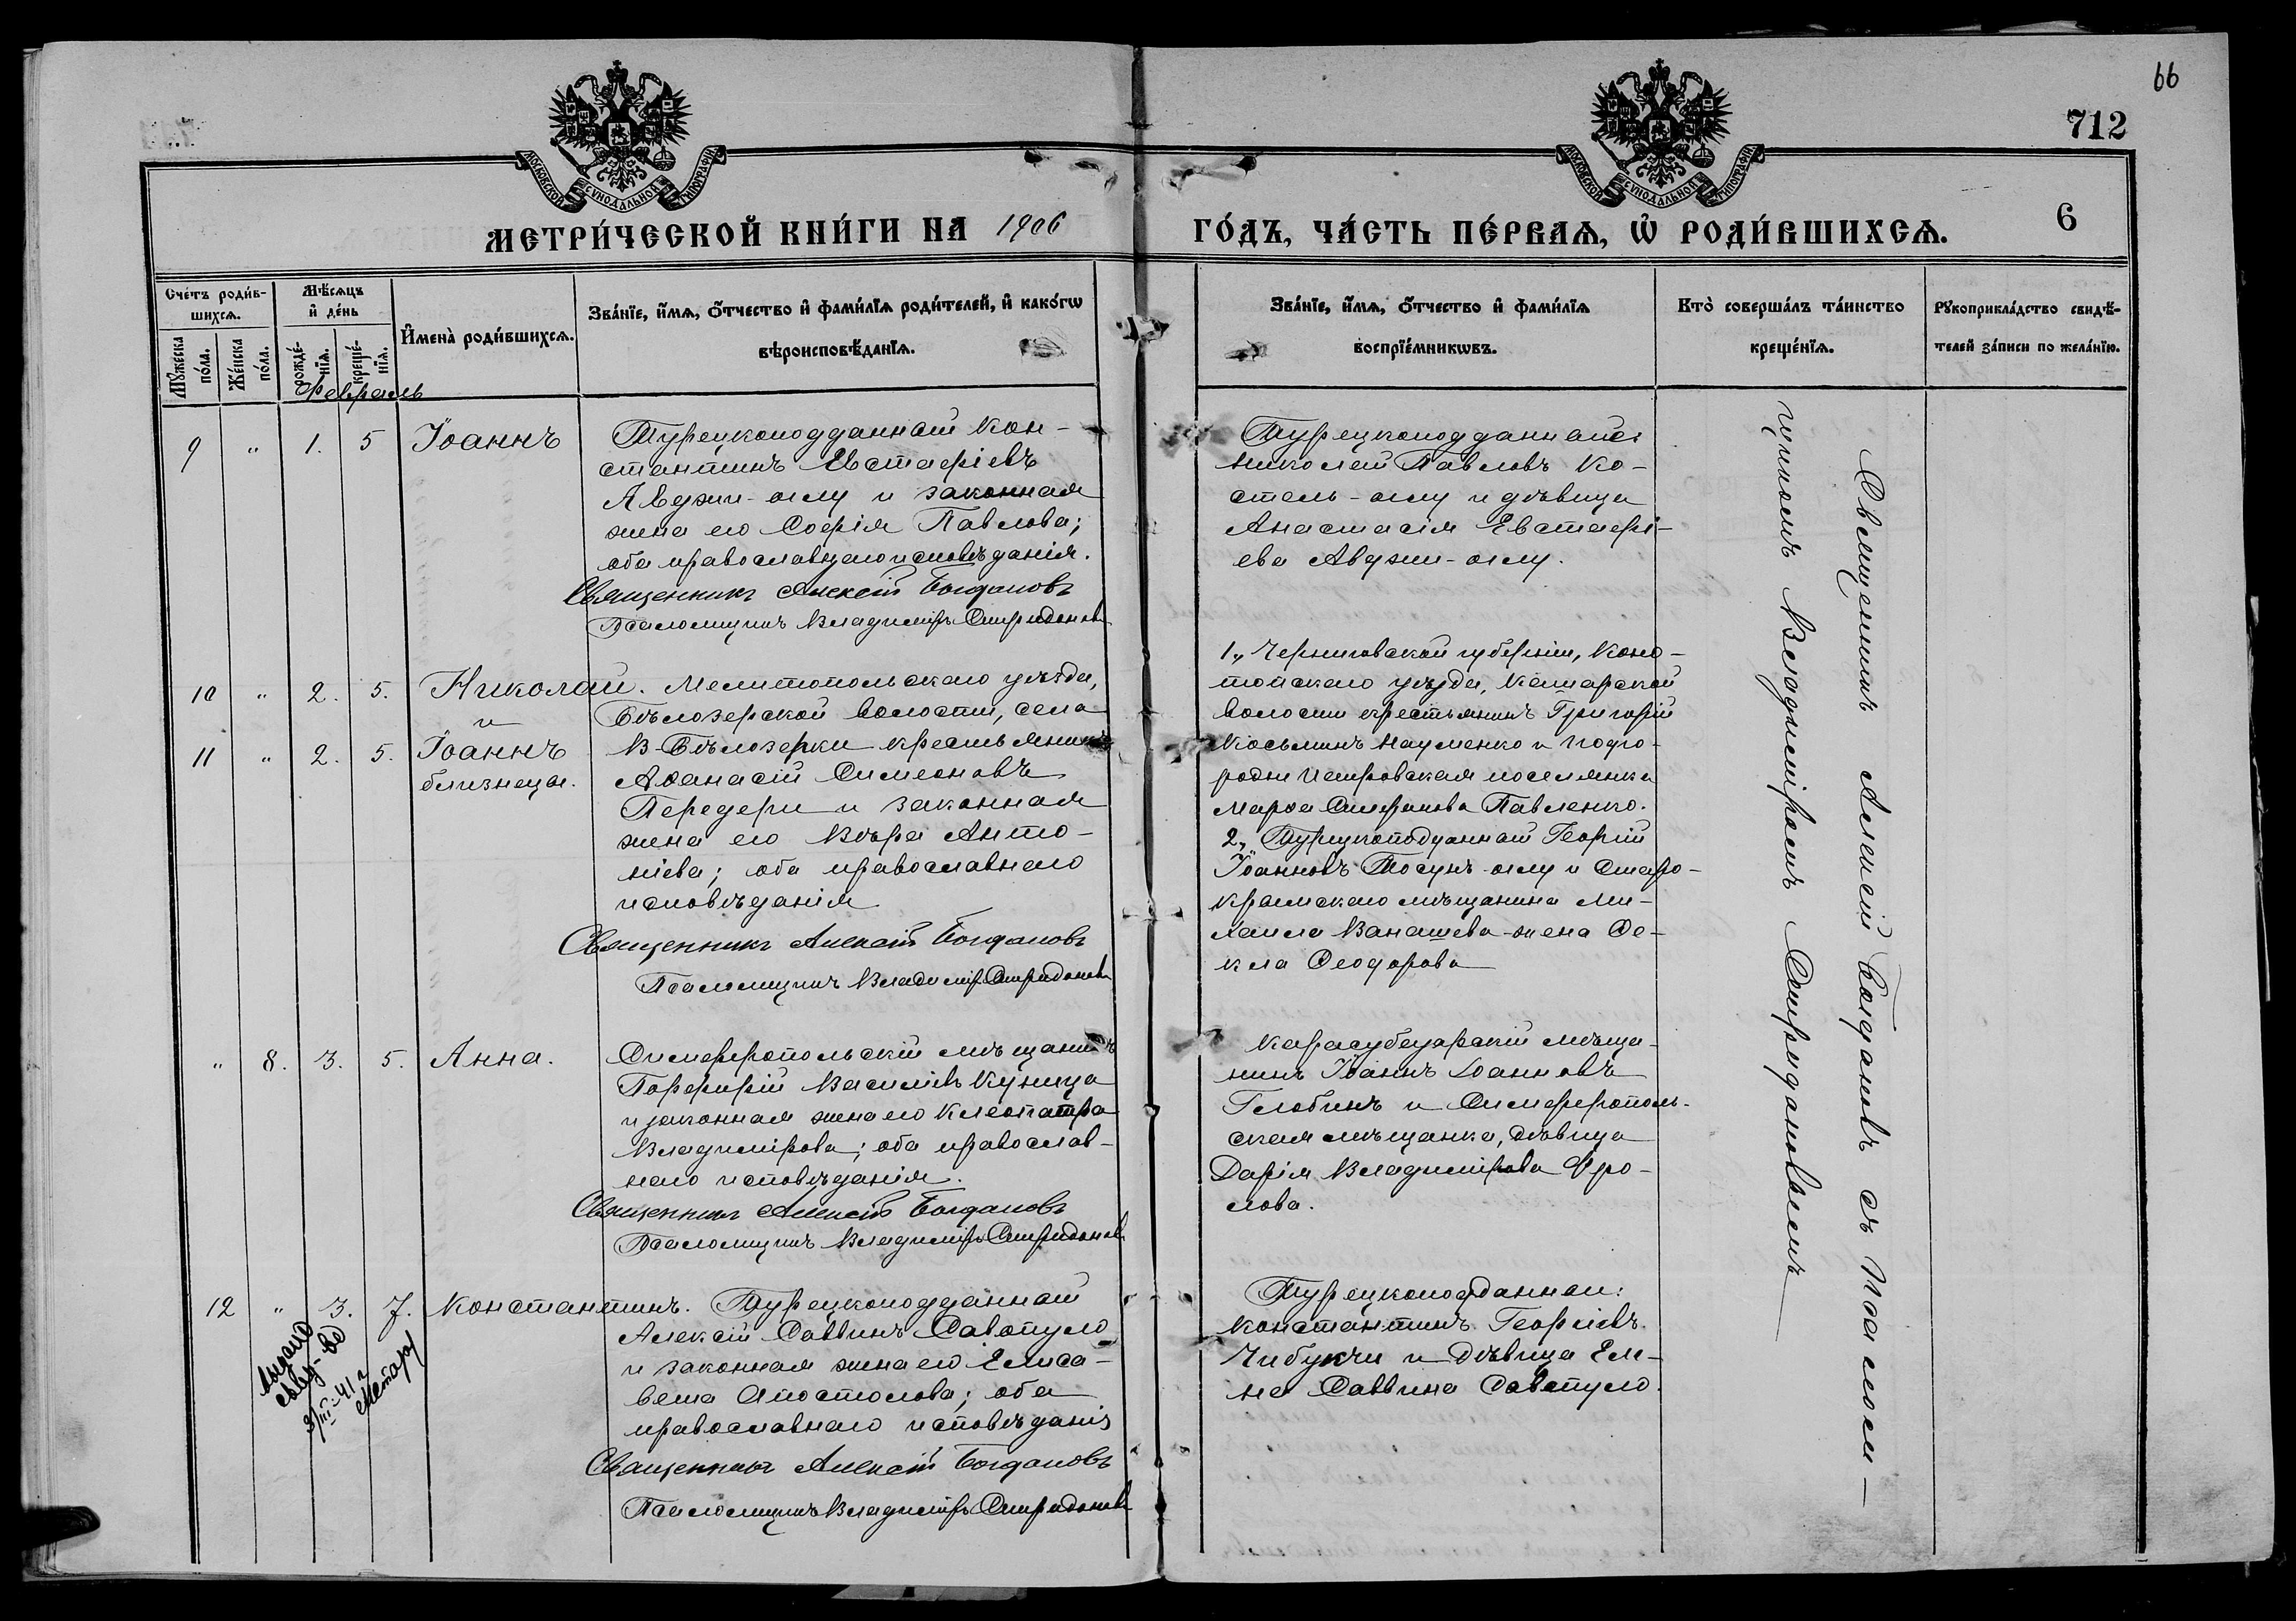 66
712
МОСКОВСКОЙ СѴНОДАЛЬНОЙ ТИПОГРАФІИ
МОСКОВСКОЙ СѴНОДАЛЬНОЙ ТИПОГРАФІИ
МЕТРИ́ЧЕСКОЙ КНИ́ГИ НА 1906 ГО́ДЪ, ЧА́СТЬ ПЕ́РВАѦ, Ѡ҆ РОДИ́ВШИХСѦ.
6
Сче́тъ роди́в-
шихсѧ.
Мꙋ́жеска по́ла.
Же́нска по́ла.
Мѣ́сѧцъ и҆ де́нь
рожде́-нїѧ.
креще́-нїѧ.
И҆мена̀ роди́вшихсѧ.
Зва́нїе, и҆́мѧ, ѻ҆́тчество и҆ фами́лїѧ роди́телей, и҆ како́гѡ
вѣроисповѣ́данїѧ.
Зва́нїе, и҆́мѧ, ѻ҆́тчество и҆ фами́лїѧ
воспрїе́мникѡвъ.
Кто̀ соверша́лъ та́инство
креще́нїѧ.
Рꙋкоприкла́дство свидѣ́-
телей за́писи по жела́нїю.
Февраль
9 " 1. 5 Іоаннъ
Турецкоподданный Кон-
стантинъ Евстафіевъ
Авджи-оглу и законная
жена его Софія Павлова;
оба православнаго исповѣданія.
Священникъ Алексій Богдановъ
Псаломщикъ Владиміръ Спиридоновъ
Турецкоподданные:
Николай Павловъ Ко-
стель-оглу и дѣвица
Анастасія Евстафі-
ева Авджи-оглу.
10 " 2. 5. Николай.
и
11 " 2. 5. Іоаннъ
близнецы.
Мелитопольскаго уѣзда,
Бѣлозерской волости, села
В-Бѣлозерки крестьянинъ
Аѳанасій Симеоновъ
Передери и законная
жена его Вѣра Анто-
ніева; оба православнаго
исповѣданія
Священникъ Алексій Богдановъ
Псаломщикъ Владимір Спиридоновъ
1., Черниговской губерніи, Коно-
топскаго уѣзда,
волости крестьянинъ Григорій
Косьминъ Науменко и
Петровская поселянка
Марѳа Павленко.
2., Турецкоподданный Георгій
Іоанновъ Тосунъ-оглу и Старо-
крымскаго мѣщанина Ми-
хаила Ванашева жена Ѳе-
кла Ѳеодорова
" 8. 3. 5. Анна.
Симферопольскій мѣщанинъ
Порфирій Василіевъ Куница
и законная жена его Клеопатра
Владимірова; оба православ-
наго исповѣданія.
Священникъ Алексій Богдановъ
Псаломщикъ Владиміръ Спиридоновъ
Карасубазарскій мѣща-
нинъ Іоаннъ Іоанновъ
Глобинъ и Симферополь-
ская мѣщанка, дѣвица
Дарія Владимірова Фро-
лова.
12 " 3. 7. Константинъ.
Турецкоподданный
Алексій Саввинъ Савопуло
и законная жена его Елиса-
вета Апостолова; оба
православнаго исповѣданія
Священникъ Алексій Богдановъ
Псаломщикъ Владиміръ Спиридоновъ
Турецкоподданные:
Константинъ Георгіевъ
Чибукчи и дѣвица Еле-
на Саввина Савопуло.
Выдано
свид-во
III-41 г
Священникъ Алексій Богдановъ съ псалом-
щикомъ Владиміромъ Спиридоновымъ